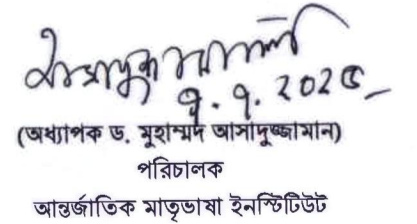 ৭.৭.২০২৫
(অধ্যাপক ড. মুহাম্মদ আসাদুজ্জামান)
পরিচালক
আন্তর্জাতিক মাতৃভাষা ইনস্টিটিউট